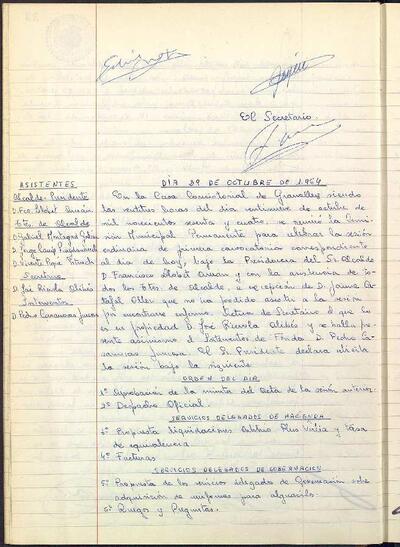 El Secretario
DIA 29 DE OCTUBRE DE 1.964
ASISTENTES
Alcalde-Presidente
D. Fco. Llobet Arnán
Ttes. de Alcalde
D. José
Secretario
Interventor
D. Pedro Casanovas
En la Casa Consistorial de Granollers siendo
las veintiuna horas del día veintinueve de octubre de
mil novecientos sesenta y cuatro se reunió la Comi-
sión Municipal Permanente para celebrar la sesión
ordinaria de primera convocatoria correspondiente
al día de hoy, bajo la Presidencia del Sr. Alcalde
D. Francisco Llobet Arnán y con la asistencia de to-
dos los Ttes. de Alcalde, a excepción de D. Jaime Ca-
Oller que no ha podido asistir a la sesión
por encontrarse enfermo. Actua de Secretario el que lo
es en propiedad D. José y se halla pre-
sente asimismo el Interventor de Fondos D. Pedro Ca-
El Sr. Presidente declara abierta
la sesión bajo la siguiente
ORDEN DEL DIA
1º Aprobación de la minuta del Acta de la sesión anterior.
2º Despacho Oficial.
SERVICIOS DELEGADOS DE HACIENDA
3º Propuesta liquidaciones Arbitrio Plus Valía y tasa
de equivalencia
4º Facturas
SERVICIOS DELEGADOS DE GOBERNACION
5º Propuesta de los servicios delegados de Gobernación sobre
adquisición de uniformes para alguacils.
6º Ruegos y Preguntas.